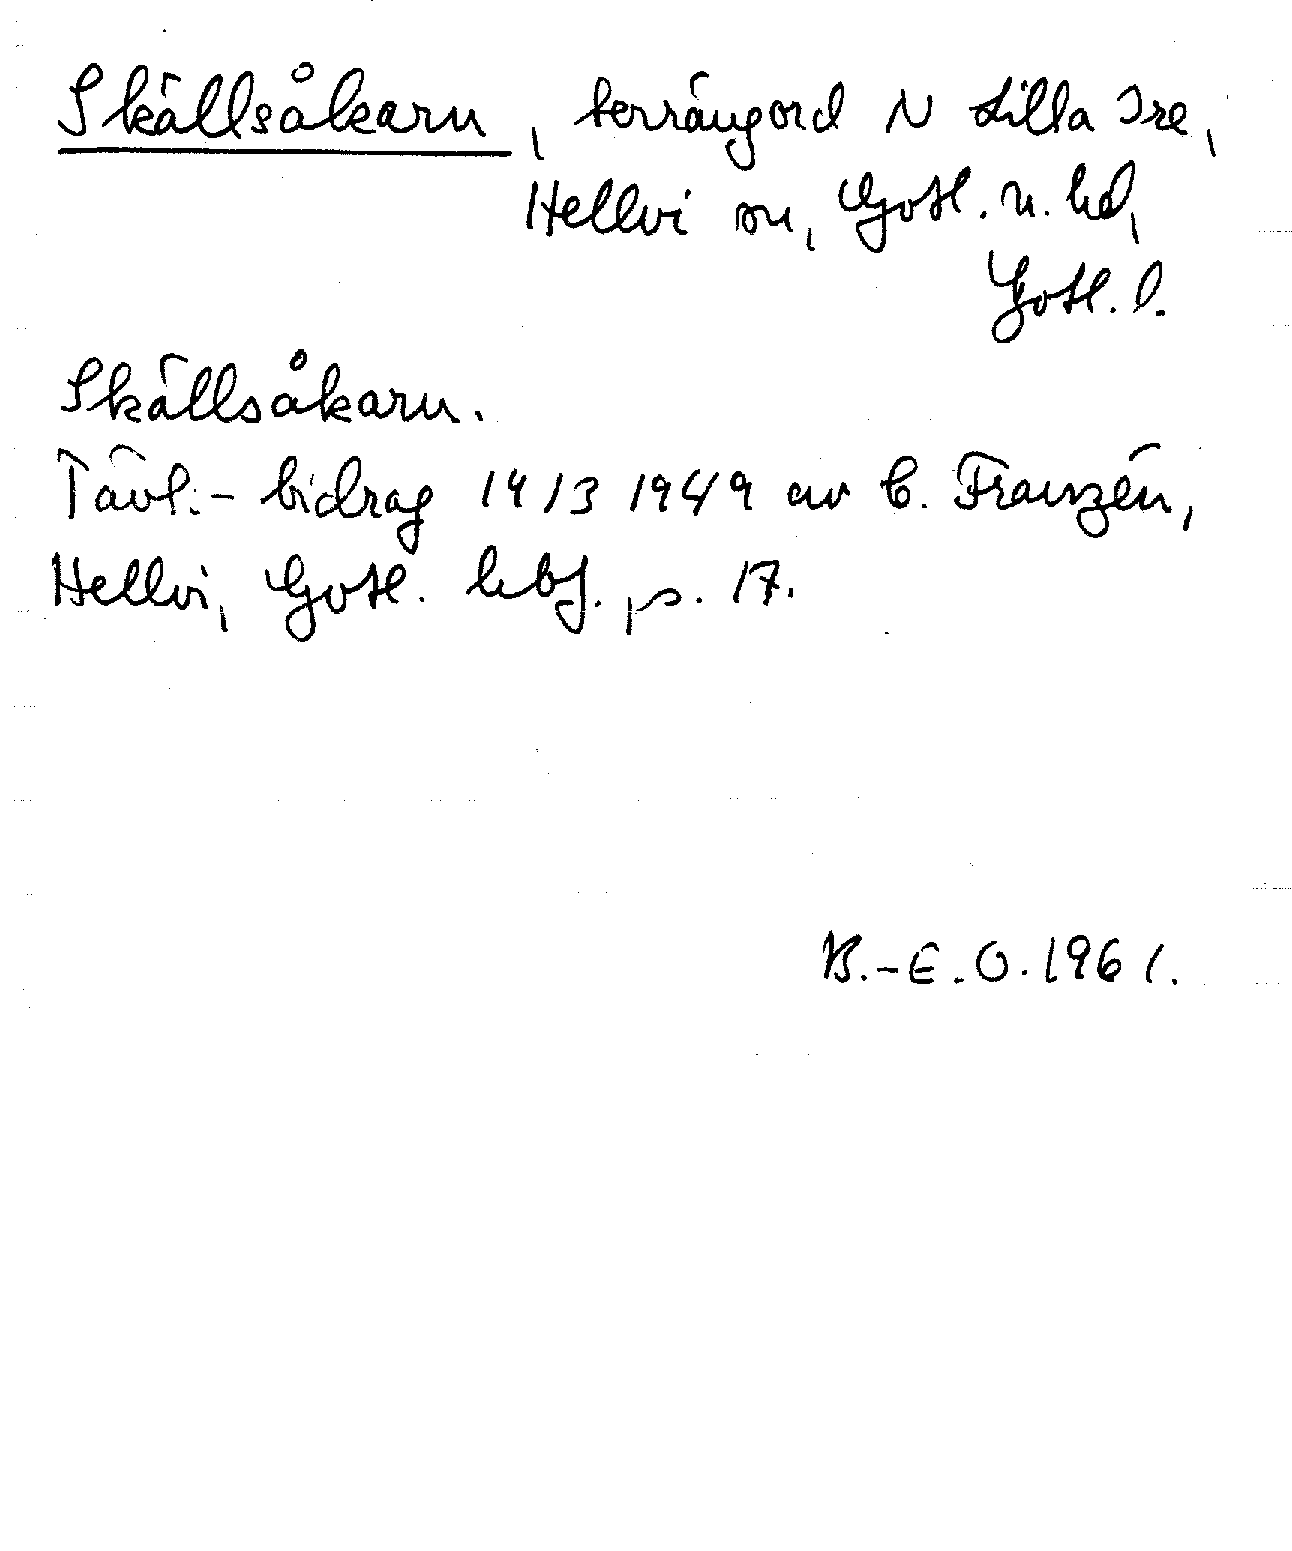 Skällsåkarn, terrängord N Lilla Ire,
Hellvi sn, Gotl. n. hd,
Gotl. l.
Skällsåkarn.
Tävl.-bidrag 14/3 1949 av C. Franzén,
Hellvi, Gotl. hbf., s. 17.
B.-E. O. 1961.